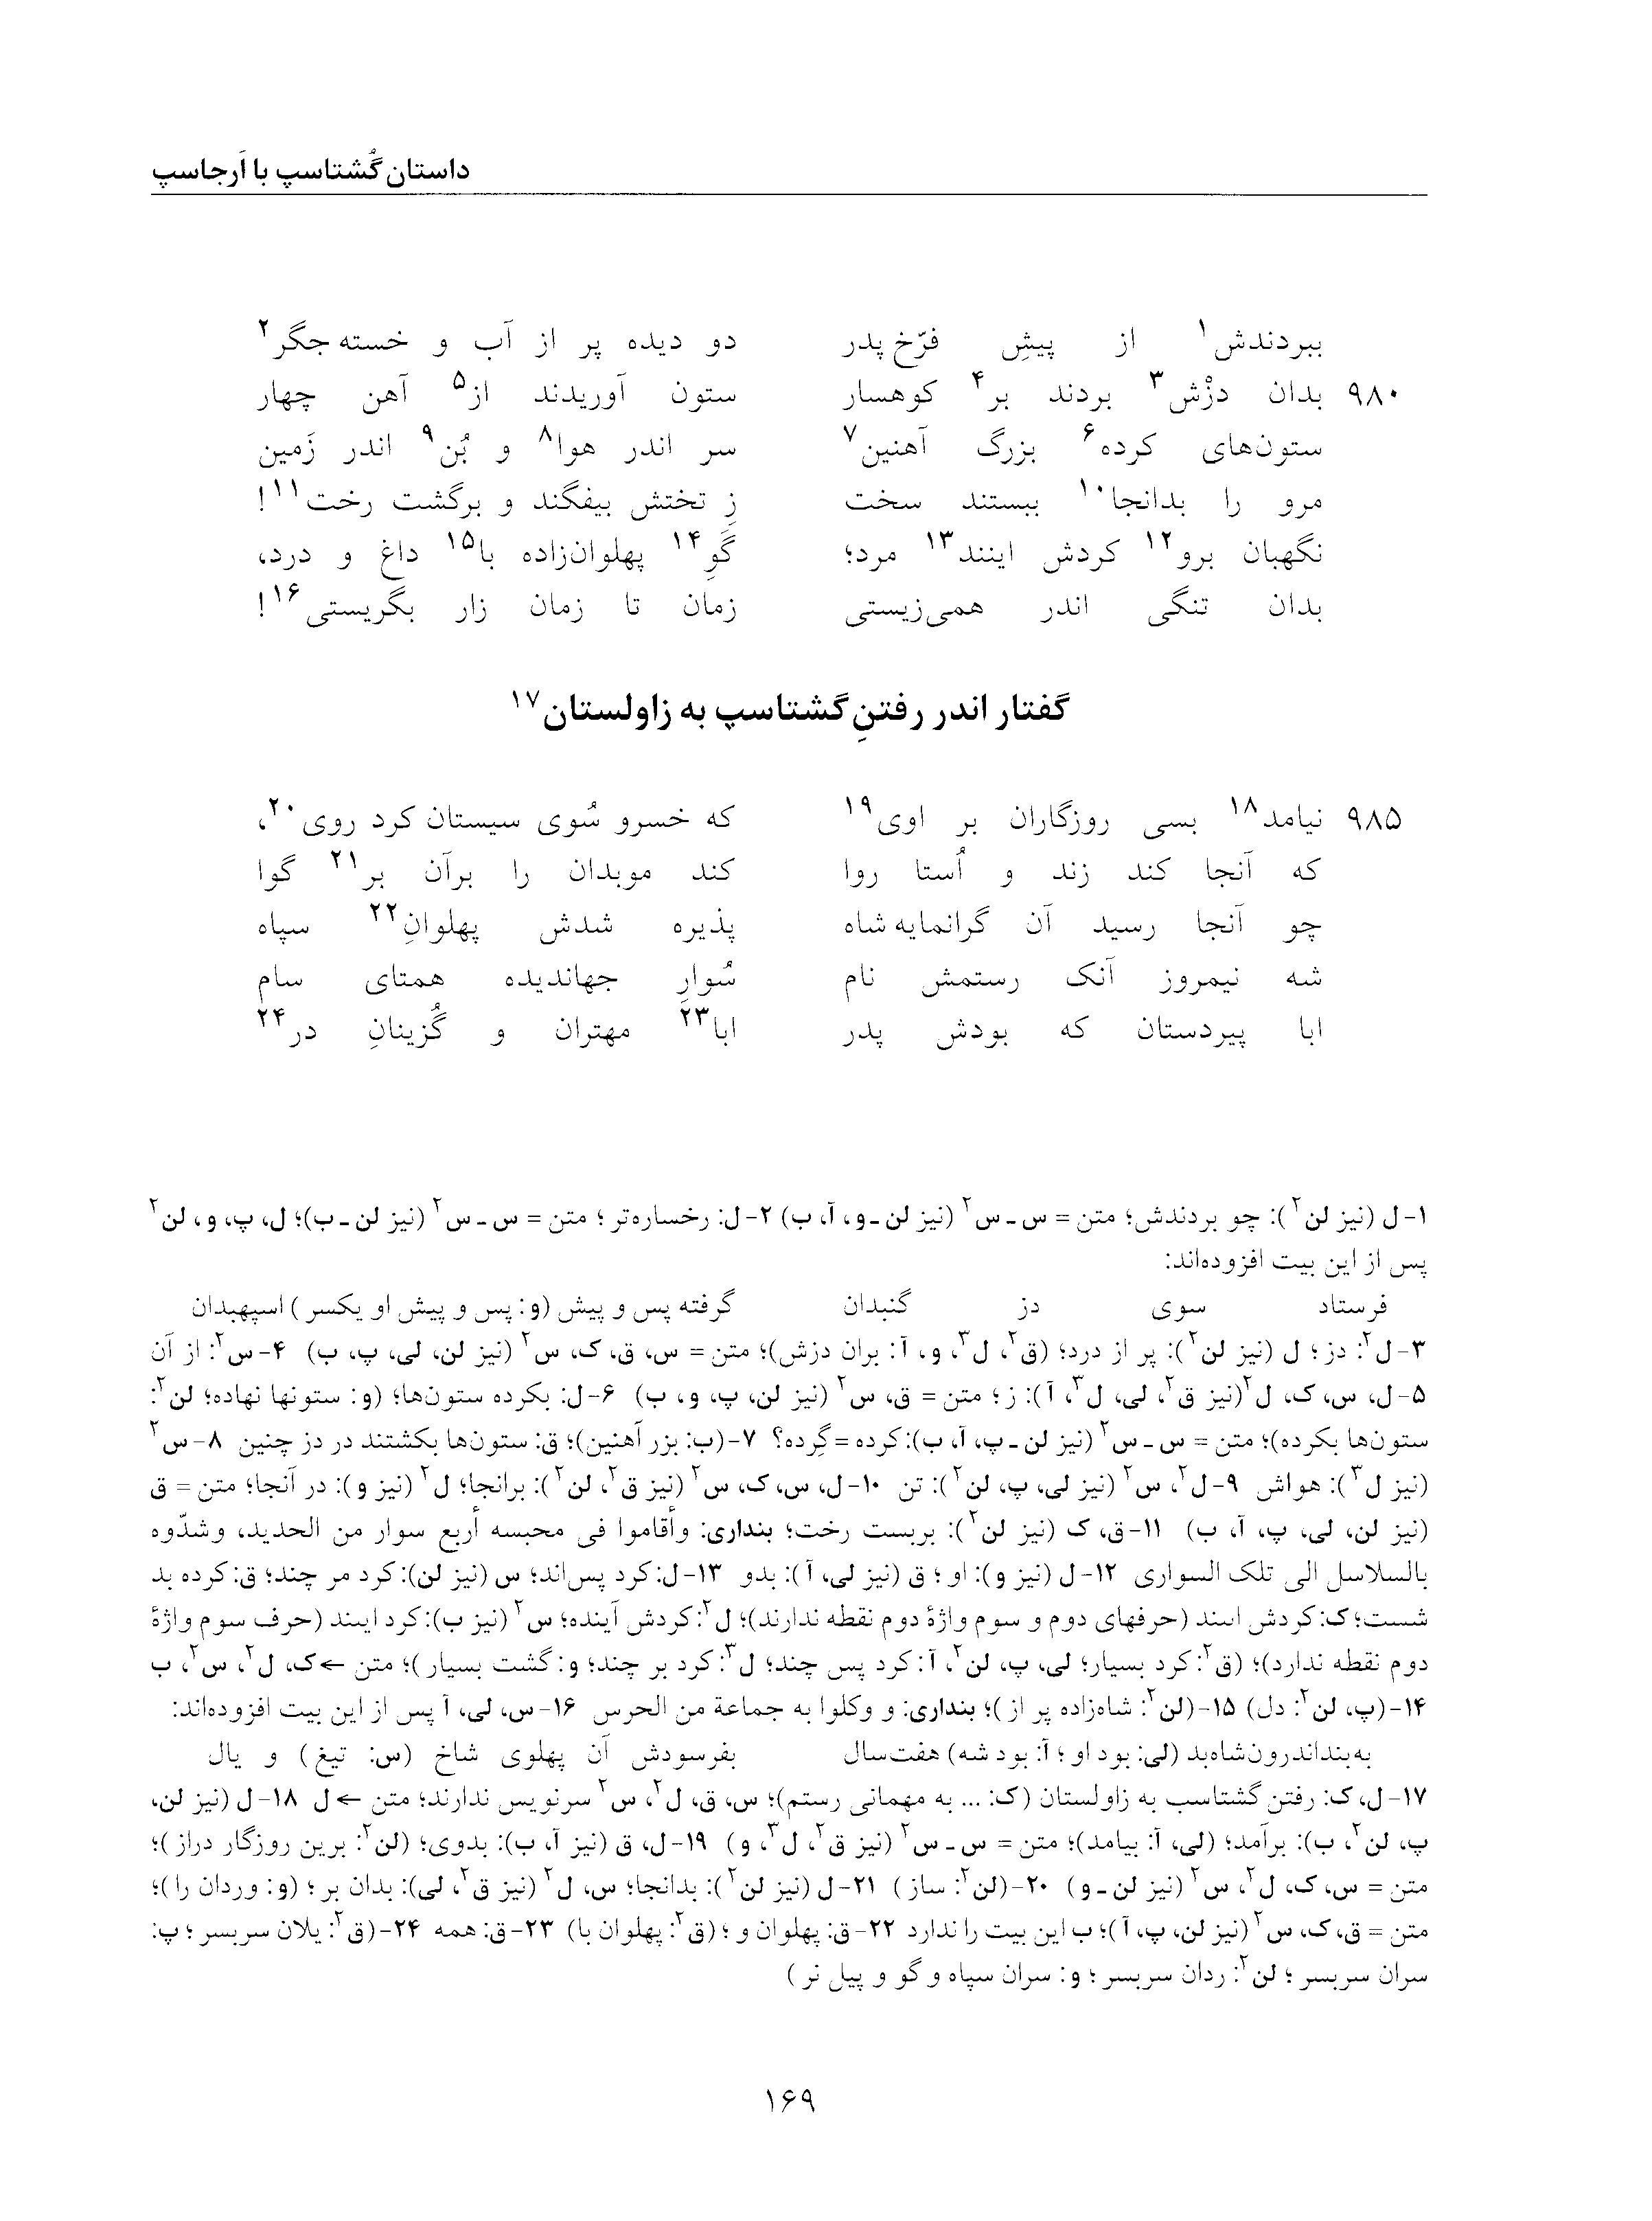 داستان گُشتاسپ با اَرجاسپ
ببردندش۱ از پیشِ فرّخ پدر دو دیده پر از آب و خسته جگر۲
۹۸۰ بدان دزْش۳ بردند بر۴ کوهسار ستون آوریدند از۵ آهن چهار
ستون‌های کرده۶ بزرگ آهنین۷ سر اندر هوا۸ و بُن۹ اندر زَمین
مرو را بدانجا۱۰ ببستند سخت زِ تختش بیفگند و برگشت رخت۱۱!
نگهبان برو۱۲ کردش اینند۱۳ مرد؛ گَوِ۱۴ پهلوان‌زاده با۱۵ داغ و درد،
بدان تنگی اندر همی‌زیستی زمان تا زمان زار بگریستی۱۶!
گفتار اندر رفتنِ گشتاسپ به زاولستان۱۷
۹۸۵ نیامد۱۸ بسی روزگاران بر اوی۱۹ که خسرو سُوی سیستان کرد روی۲۰،
که آنجا کند زند و اُستا روا کند موبدان را برآن بر۲۱ گوا
چو آنجا رسید آن گرانمایه شاه پذیره شدش پهلوانِ۲۲ سپاه
شه نیمروز آنک رستمش نام سُوارِ جهاندیده همتای سام
ابا پیردستان که بودش پدر ابا۲۳ مهتران و گُزینانِ در۲۴
۱-ل (نیز لن۲): چو بردندش؛ متن = س ـ س۲ (نیز لن ـ و، آ، ب) ۲-ل: رخساره‌تر؛ متن = س ـ س۲ (نیز لن ـ ب)؛ ل، پ، و، لن۲
پس از این بیت افزوده‌اند:
فرستاد سوی دز گنبدان گرفته پس و پیش (و: پس و پیش او یکسر) اسپهبدان
۳-ل۲: دز؛ ل (نیز لن۲): پر از درد؛ (ق۲، ل۳، و، آ: بران دزش)؛ متن = س، ق، ک، س۲ (نیز لن، لی، پ، ب) ۴-س۲: از آن
۵-ل، س، ک، ل۲ (نیز ق۲، لی، ل۳، آ): ز؛ متن = ق، س۲ (نیز لن، پ، و، ب) ۶-ل: بکرده ستون‌ها؛ (و: ستونها نهاده؛ لن۲:
ستون‌ها بکرده)؛ متن = س ـ س۲ (نیز لن ـ پ، آ، ب): کرده = گِرده؟ ۷-(ب: بزر آهنین)؛ ق: ستون‌ها بکشتند در دز چنین ۸-س۲
(نیز ل۳): هواش ۹-ل۲، س۲ (نیز لی، پ، لن۲): تن ۱۰-ل، س، ک، س۲ (نیز ق۲، لن۲): برانجا؛ ل۲ (نیز و): در آنجا؛ متن = ق
(نیز لن، لی، پ، آ، ب) ۱۱-ق، ک (نیز لن۲): بربست رخت؛ بنداری: وأقاموا فی محبسه أربع سوار من الحدید، وشدّوه
بالسلاسل الی تلک السواری ۱۲-ل (نیز و): او؛ ق (نیز لی، آ): بدو ۱۳-ل: کرد پس‌اند؛ س (نیز لن): کرد مر چند؛ ق: کرده بد
شست؛ ک: کردش اٮںند (حرفهای دوم و سوم واژهٔ دوم نقطه ندارند)؛ ل۲: کردش آینده؛ س۲ (نیز ب): کرد ایٮند (حرف سوم واژهٔ
دوم نقطه ندارد)؛ (ق۲: کرد بسیار؛ لی، پ، لن۲، آ: کرد پس چند؛ ل۳: کرد بر چند؛ و: گشت بسیار)؛ متن ← ک، ل۲، س۲، ب
۱۴-(پ، لن۲: دل) ۱۵-(لن۲: شاه‌زاده پر از)؛ بنداری: و وکلوا به جماعة من الحرس ۱۶-س، لی، آ پس از این بیت افزوده‌اند:
به‌بنداندرون‌شاه‌بد (لی: بود او؛ آ: بود شه) هفت‌سال بفرسودش آن پهلوی شاخ (س: تیغ) و یال
۱۷-ل، ک: رفتن گشتاسب به زاولستان (ک: ... به مهمانی رستم)؛ س، ق، ل۲، س۲ سرنویس ندارند؛ متن ← ل ۱۸-ل (نیز لن،
پ، لن۲، ب): برآمد؛ (لی، آ: بیامد)؛ متن = س ـ س۲ (نیز ق۲، ل۳، و) ۱۹-ل، ق (نیز آ، ب): بدوی؛ (لن۲: برین روزگار دراز)؛
متن = س، ک، ل۲، س۲ (نیز لن ـ و) ۲۰-(لن۲: ساز) ۲۱-ل (نیز لن۲): بدانجا؛ س، ل۲ (نیز ق۲، لی): بدان بر؛ (و: وردان را)؛
متن = ق، ک، س۲ (نیز لن، پ، آ)؛ ب این بیت را ندارد ۲۲-ق: پهلوان و؛ (ق۲: پهلوان با) ۲۳-ق: همه ۲۴-(ق۲: یلان سربسر؛ پ:
سران سربسر؛ لن۲: ردان سربسر؛ و: سران سپاه و گو و پیل نر)
۱۶۹